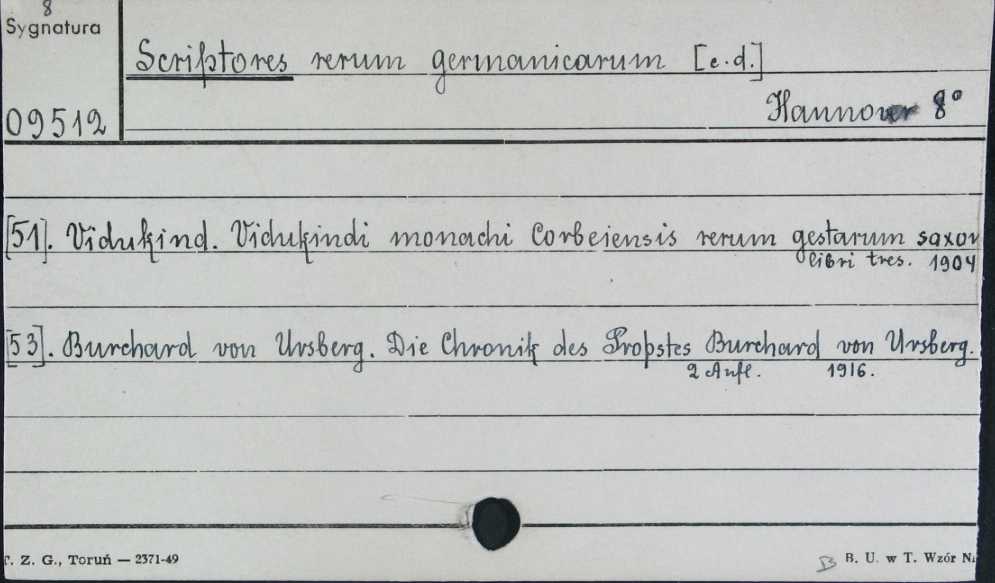 8
Sygnatura
Scriptores rerum germanicarum [c.d.]
09512
Hannover 8°
[51]. Vidukind. Vidukindi monachi Corbeiensis rerum gestarum saxon
libri tres. 1904
[53]. Burchard von Ursberg. Die Chronik des Propstes Burchard von Ursberg.
2 Aufl. 1916.
T. Z. G., Toruń — 2371-49
B B. U. w T. Wzór N